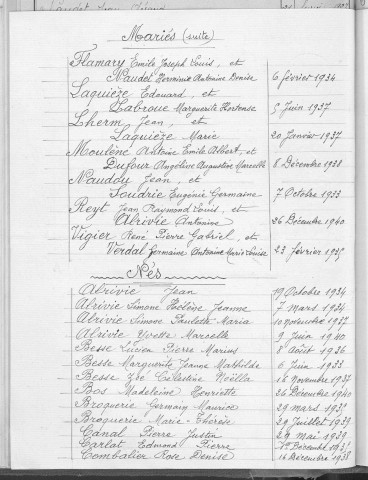 Mariés (suite)
Flamary Emile Joseph Louis, et
Naudet Germaine Antoinine Denise 6 février 1934
Laquièze Edouard, et
Labroue Marguerite Hortense 5 Juin 1937
Lherm Jean, et
Laquièze Marie 20 Janvier 1937
Moulène Antoine Emile Albert, et
Dufour Angéline Augustine Marcelle 8 Décembre 1928
Naudou Jean, et
Soudrie Eugénie Germaine 7 Octobre 1933
Reyt Jean Raymond Louis, et
Alrivie Antonine 26 Décembre 1940
Vigier René Pierre Gabriel, et
Verdal Germaine Antonine Marie Louise 23 Février 1935
Nés
Alrivie Jean 19 Octobre 1934
Alrivie Simone Hélène Jeanne 7 mars 1934
Alrivie Simone Paulette Maria 10 novembre 1937
Alrivie Yvette Marcelle 9 Juin 1940
Besse Lucien Pierre Marius 8 août 1936
Besse Marguerite Jeanne Mathilde 6 Juin 1933
Besse Célestine Noëlla 16 Novembre 1937
Bos Madeleine Henriette 26 Décembre 1940
Broquerie Germain Maurice 29 mars 1937
Broquerie Marie-Thérèse 29 Juillet 1939
Canal Pierre Justin 29 mai 1939
Carlat Edmond Pierre Décembre
Combalier Rose Denise 16 Décembre 1938